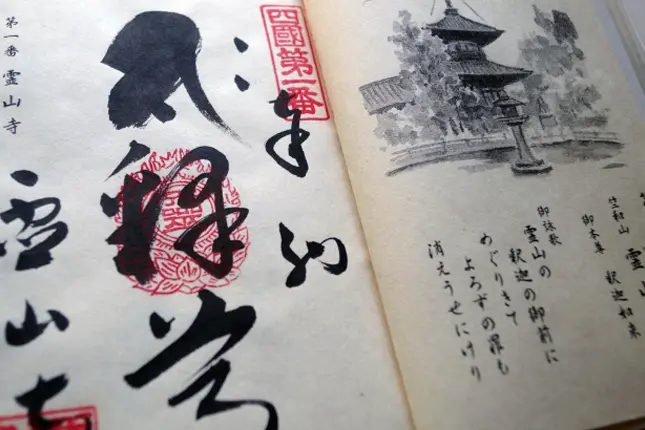 竺和山 霊
御本尊 釈迦如来
御詠歌 霊山の 釈迦の御前に
めぐりきて
よろずの罪も
消えうせにけり
四國第一番
奉納
第一番 霊山寺
霊山寺